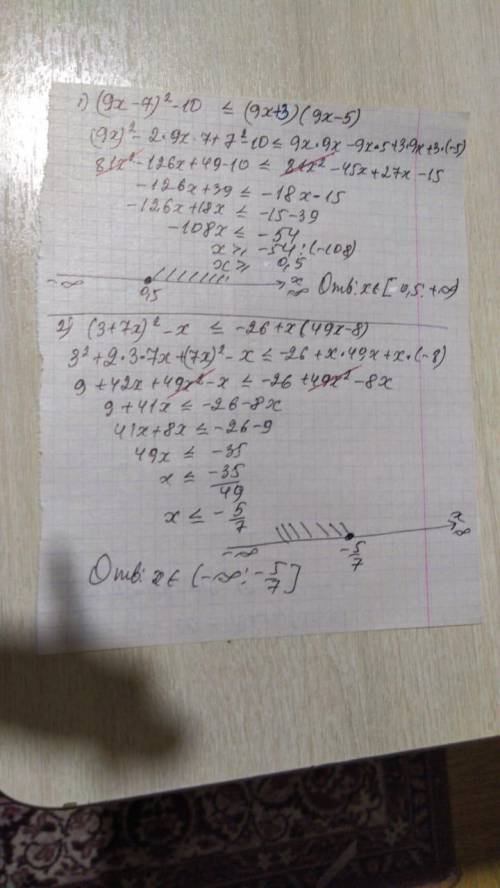 1) (9x-7)²-10 ≤ (9x+3)(9x-5)
(9x)²-2·9x·7+7²-10 ≤ 9x·9x-9x·5+3·9x+3·(-5)
81x²-126x+49-10 ≤ 81x²-45x+27x-15
-126x+39 ≤ -18x-15
-126x+18x ≤ -15-39
-108x ≤ -54
x ≥ -54:(-108)
x ≥ 0,5
-∞ 0,5 x ∞ Отв: x∈[0,5; +∞)
2) (3+7x)²-x ≤ -26+x(49x-8)
3²+2·3·7x+(7x)²-x ≤ -26+x·49x+x·(-8)
9+42x+49x²-x ≤ -26+49x²-8x
9+41x ≤ -26-8x
41x+8x ≤ -26-9
49x ≤ -35
x ≤ -35/49
x ≤ -5/7
-∞ -5/7 x ∞
Отв: x∈(-∞; -5/7]